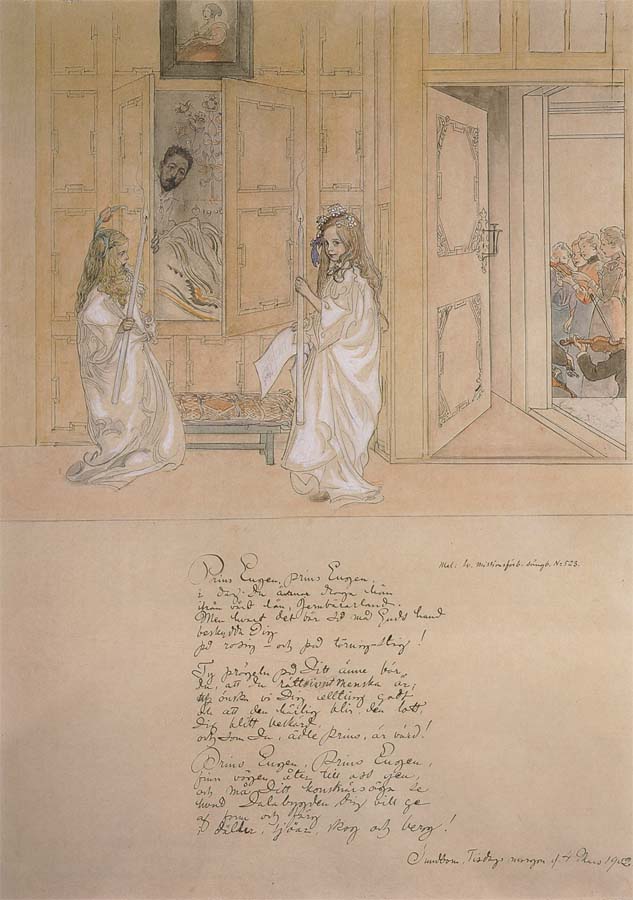 Mel: Sv. Missionsförb. sångb. Nº 523.
Prins Eugen, prins Eugen,
i dag Du draga hän
ifrån vårt län, Jernbäraland.
Men hvart det bär så må Guds hand
beskydda Dig
på rosig- och på törnig-stig!
Ty prägeln på Ditt änne bär
du, att Du rättsint menska är,
önska vi Dig allting godt
du att den blir den lott,
Dig blitt beskärd,
och som Du, ädle prins, är värd!
Prins Eugen, Prins Eugen,
finn vägen åter till oss gen,
och må Ditt konstnärsöga se
hvad Dalabygden Dig vill ge
af form och färg
i dälder, sjöar, skog och berg!
Sundborn, Tisdags morgon d. 4 Mars 1902
1902